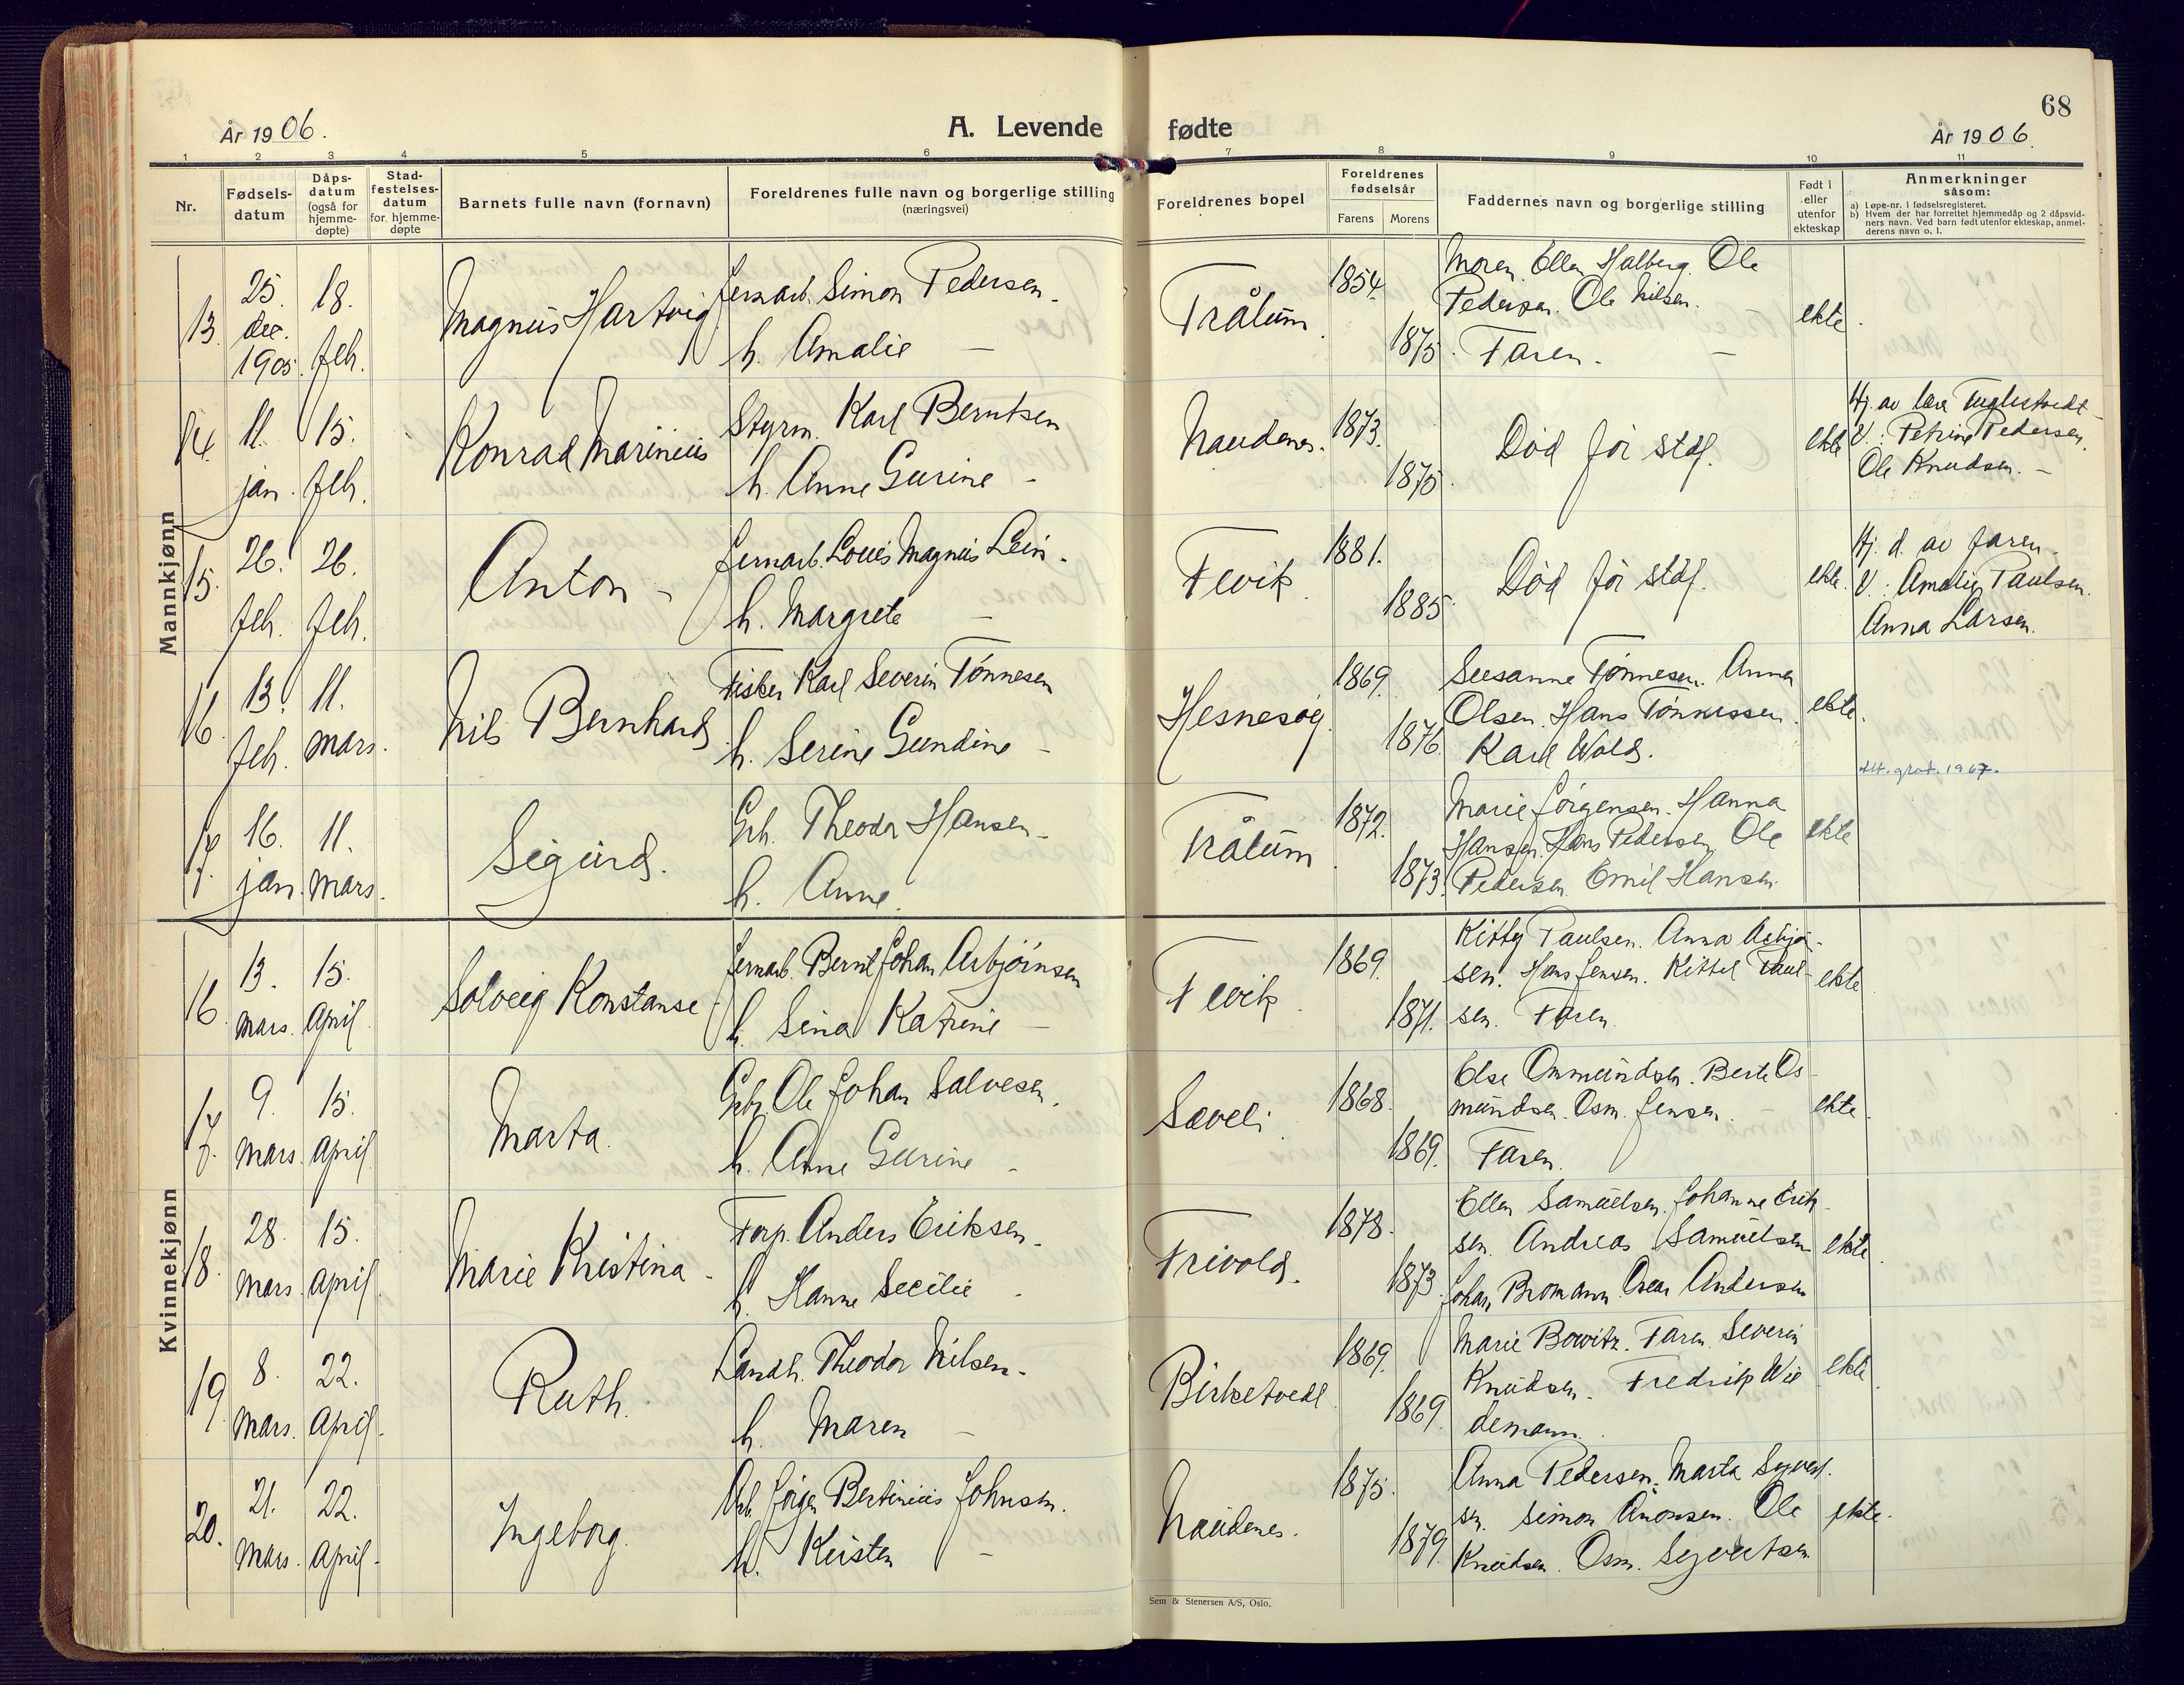 68
År 1906.
A. Levende fødte
År 1906.
1 2 3 4 5 6 7 8 9 10 11
Nr.
Fødsels-
datum
Dåps-
datum
(også for
hjemme-
døpte)
Stad-
festelses-
datum
for hjemme-
døpte
Barnets fulle navn (fornavn)
Foreldrenes fulle navn og borgerlige stilling
(næringsvei)
Foreldrenes bopel
Foreldrenes
fødselsår
Farens Morens
Faddernes navn og borgerlige stilling
Født i
eller
utenfor
ekteskap
Anmerkninger
såsom:
a) Løpe-nr. i fødselsregisteret.
b) Hvem der har forrettet hjemmedåp og 2 dåpsvid-
ners navn. Ved barn født utenfor ekteskap, anmel-
derens navn o. l.
Mannkjønn
13.
25.
dec.
1905.
18.
feb.
Magnus Hartvig
Jernarb. Simon Pedersen.
h. Amalie —
Trålum.
1854.
1875.
Moren. Ellen Halberg. Ole
Pedersen. Ole Nilsen.
Faren. —
ekte.
14.
11.
jan.
15.
feb.
Konrad Marinius
Styrm. Karl Berntsen
h. Anne Gurine -
Naudenes.
1873.
1875.
Død før stdf.
ekte
Hj. av lærer Fuglestvedt
V: Petrine Pedersen.
Ole Knudsen. —
15.
26.
feb.
26.
feb.
Anton -
Jernarb. Louis Magnus Lein.
h. Margrete —
Fevik.
1881.
1885.
Død før stdf.
ekte.
Hj. d. av faren.
V: Amalie Paulsen.
Anna Larsen.
16.
13.
feb.
11.
mars.
Nils Bernhard
Fisker Karl Severin Tönnesen
h. Serine Gundine -
Hesnesøy.
1869.
1876.
Susanne Tönnesen. Anna
Olsen. Hans Tönnessen.
Karl Wold.
ekte.
Att. grat. 1967.
17.
16.
jan.
11.
mars.
Sigurd.
Grb. Theodor Hansen -
h. Anne.
Trålum.
1872.
1873.
Marie Jörgensen. Hanna
Hansen. Hans Pedersen. Ole
Pedersen. Emil Hansen.
ekte
Kvinnekjønn
16.
13.
mars.
15.
April.
Solveig Konstanse
Jernarb. Bernt Johan Asbjörnsen
h. Sina Katrine —
Fevik.
1869.
1871.
Kitty Paulsen. Anna Asbjö-
sen. Hans Jensen. Kittel Paul-
sen. Faren.
ekte.
17.
9.
mars.
15.
April
Marta.
Grb. Ole Johan Salvesen.
h. Anne Gurine -
Sæveli
1868.
1869.
Else Onmundsen. Berte Os-
mundsen. Osm. Jensen. —
Faren.
ekte.
18.
28.
mars
15.
April
Marie Kristina -
Forp. Anders Eriksen.
h. Hanne Secilie.
Frivold.
1878.
1873.
Ellen Samuelsen. Johanne Erik-
sen. Andreas Samuelsen
Johan Bromann. Oscar Andersen
ekte.
19.
8.
mars.
22.
April.
Ruth.
Landh. Theodor Nilsen.
h. Maren —
Birketvedt.
1869.
1869.
Marie Bowitz. Faren. Severin
Knudsen. Fredrik Wie
demann.
ekte.
20.
21.
mars.
22.
April.
Ingeborg.
Arb. Jörgen Bertinius Johnsen.
h. Kirsten —
Naudenes.
1875.
1879.
Anna Pedersen. Marta Syvert.
sn. Simon Aronsen. Ole
Knudsen. Osm. Syvertsen.
ekte.
Sem & Stenersen A/S, Oslo.